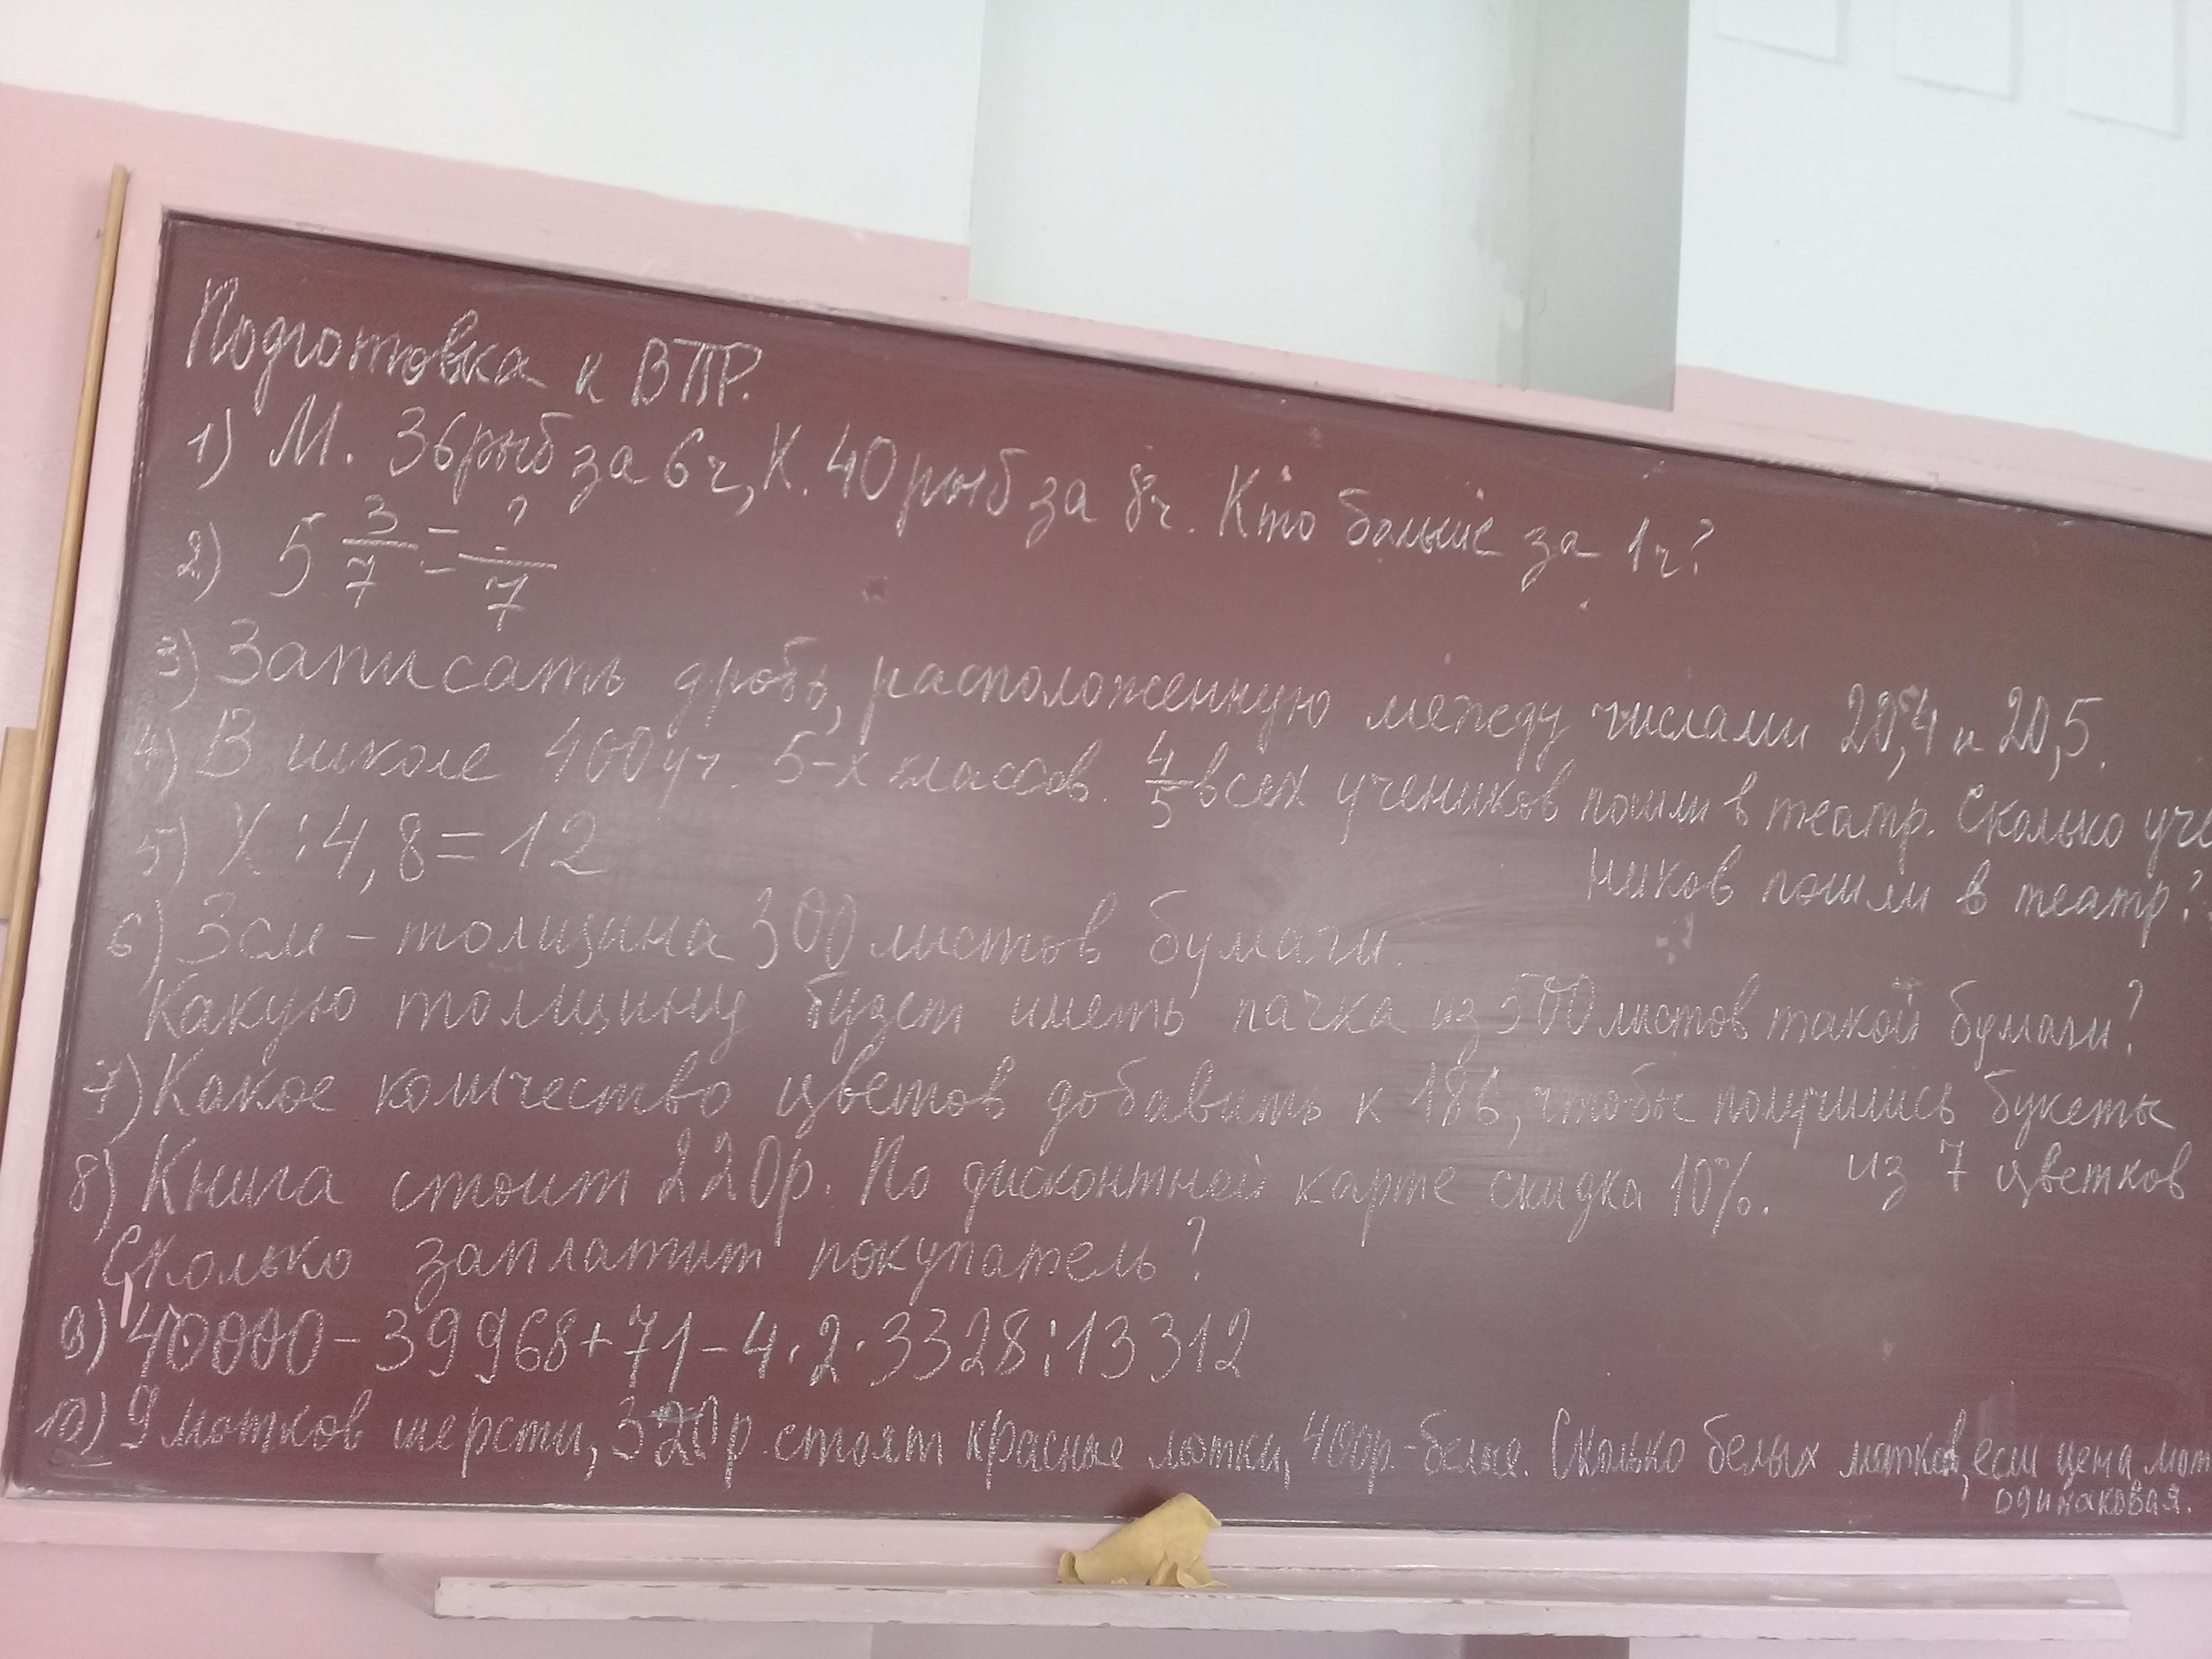 Подготовка к ВПР.
1) М. 36 рыб за 6 ч, К. 40 рыб за 8 ч. Кто больше за 1 ч?
2) 5 3/7 = ?/7
3) Записать дробь, расположенную между числами 20,4 и 20,5.
4) В школе 400 уч. 5-х классов. 4/5 всех учеников пошли в театр. Сколько уче
ников пошли в театр?
5) X : 4,8 = 12
6) 3 см – толщина 300 листов бумаги.
Какую толщину будет иметь пачка из 500 листов такой бумаги?
7) Какое количество цветов добавить к 186, чтобы получились букеты
из 7 цветков
8) Книга стоит 220 р. По дисконтней карте скидка 10%.
Сколько заплатит покупатель?
9) 40000 – 39968 + 71 – 4 · 2 · 3328 : 13312
10) 9 мотков шерсти, 320 р. стоят красные мотки, 400 р. – белые. Сколько белых мотков, если цена мот
одинаковая.